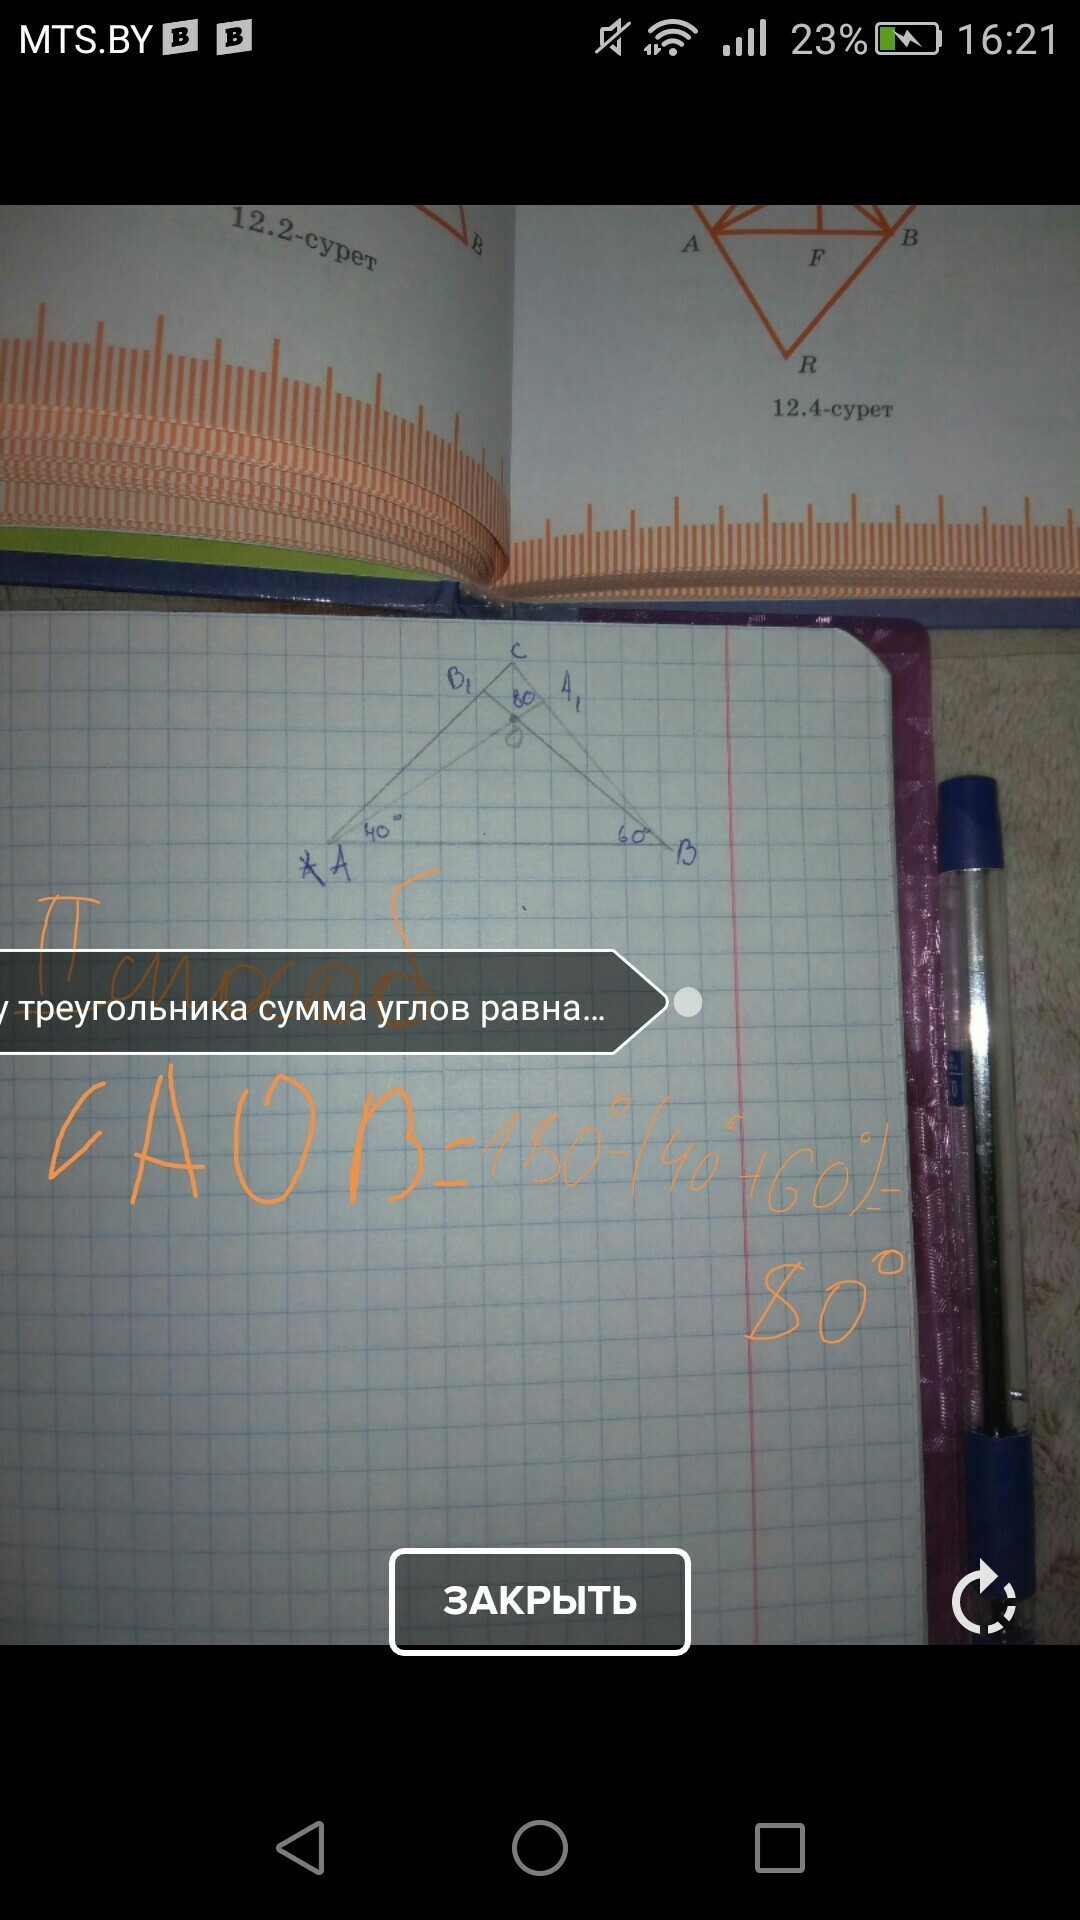 MTS.BY B B 23% 16:21
12.2-сурет
B
A F B
R
12.4-сурет
C
B₁ 80 A₁
O
40° 60°
A B
I способ
у треугольника сумма углов равна...
<AOB=180°-(40°+60°)=
80°
ЗАКРЫТЬ